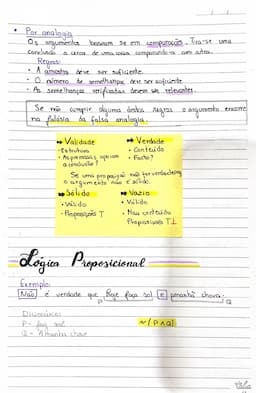 • Por analogia
Os argumentos baseiam se em comparações. Tira-se uma
conclusão a cerca de uma coisa comparando-a com outra.
Regras:
• A amostra deve ser suficiente.
• O número de semelhanças deve ser suficiente
• As semelhanças verificadas devem ser relevantes.
Se não cumprir alguma destas regras o argumento incorre
na falácia da falsa analogia.
➡ Validade
• Estrutura
• As premissas apoiam
a conclusão?
➡ Verdade
• Conteúdo
• Facto?
Se uma proposição não for verdadeira
o argumento não é sólido.
➡ Sólido
• Válido
• Proposições T
➡ Vazio
• Válido
• Mau conteúdo
Proposições T⊥
Lógica Proposicional
Exemplo:
Não é verdade que Hoje faça sol e amanhã chova.
P Q
Dicionário:
P - faz sol
Q - Amanhã chove
~(P∧Q)